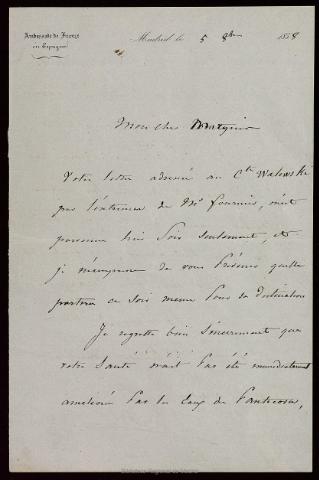 Ambassade de France
en Espagne
Madrid le 5 8bre 1858
Mon cher Marquis
Votre lettre adressée au Cte Walewski
par l'entremise de Mr Fournier, m'est
parvenue hier soir seulement, &
je m'empresse de vous prévenir qu'elle
partira ce soir même pour sa destination
Je regrette bien sincèrement que
votre santé n'ait pas été immédiatement
améliorée par les Eaux de Panticosa,